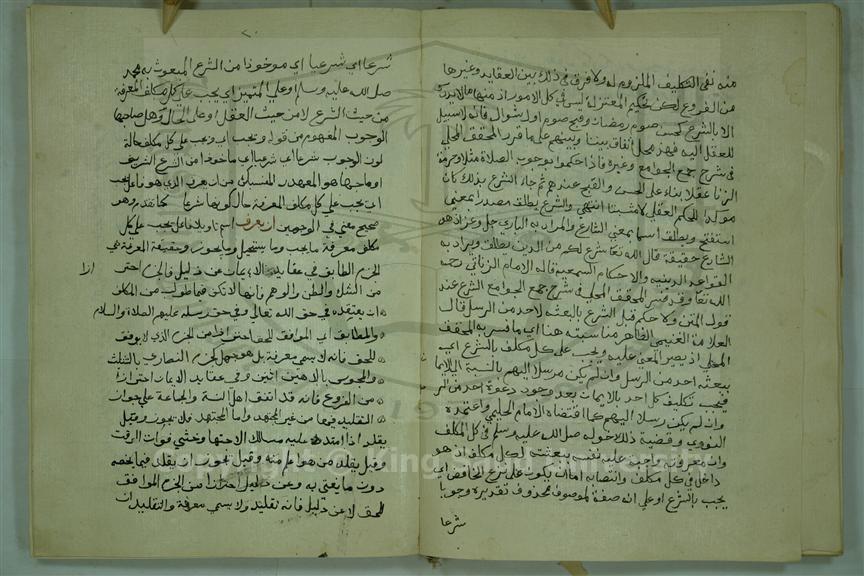 منه نفي التكليف الملزوم له ولا فرق في ذلك بين العقايد وغيرها
من الفروع لكن تحكيم المعتزلة ليس في كل الامور اذ منها ما لا يدرك
الا بالشرع كحسن صوم رمضان وقبح صوم اول شوال فانه لا سبيل
للعقل اليه فهذا محل اتفاق بيننا وبينهم على ما قرر المحقق المحلي
في شرح جمع الجوامع وغيره فاذا حكموا بوجوب الصلاة مثلا وحرمة
الزنا عقلا بناء على الحسن والقبح عندهم ثم جاء الشرع بذلك كان
مؤكدا لحكم العقل لا مثبتا انتهى والشرع يطلق مصدرا بمعنى
ويطلق اسما بمعنى الشارع والمراد به الباري جل وعز اذ هو
الشارع حقيقة قال الله تعا شرع لكم من الدين ويطلق ويراد به
القواعد الدينية والاحكام السمعية قاله الامام الزناتي رحمه
الله تعا وقد فسر المحقق المحلي في شرح جمع الجوامع الشرع عند
قول المتن ولا حكم قبل الشرع بالبعثة لاحد من الرسل قال
العلامة الغنيمي الظاهر مناسبته هنا اي ما فسر به المحقق
المحلي اذ يصير المعنى عليه ويجب على كل مكلف بالشرع اي
ببعثة احد من الرسل وان لم يكن مرسلا اليهم بالنسبة للايمان
فيجب تكليف كل احد بالايمان بعد وجود دعوة احد من الرسل
وان لم يكن رسلا اليهم كما اقتضاه الامام الحليمي واعتمده
النووي وقضية ذلك دخوله صلى الله عليه وسلم في كل المكلف
وان معرفته واجب على نفسه ببعثته لكل مكلف اذ هو
داخل في كل مكلف وانتصابه اما ان يكون على نزع الخافض اي
يجب بالشرع او على انه صفة لموصوف محذوف تقديره وجوبا
شرعا
شرعا اي شرعيا اي موخوذا من الشرع المبعوث به محمد
صلى الله عليه وسلم او على التمييز اي يجب على كل مكلف المعرفة
من حيث الشرع لا من حيث العقل او على الحال وهل صاحبها
الوجوب المفهوم من قوله ويجب اي ويجب على كل مكلف حالة
كون الوجوب شرعا اي شرعيا اي ماخوذا من الشرع الشريف
او صاحبها هو المصدر المنسبك من ان يعرف الذي هو فاعل يجب
اي يجب على كل مكلف المعرفة حال كونها شرعا كما تقدم وهو
صحيح معنى في الوجهين ان يعرف اسم تاويلا فاعل يجب على كل
مكلف معرفة ما يجب وما يستحيل وما يجوز وحقيقة المعرفة هي
الجزم المطابق في عقايد الايمان عن دليل فالجزم احترازا
من الشك والظن والوهم فانها لا تكفي فيما طولب من المكلف
ان يعتقده في حق الله تعالى وفي حق رسله عليهم الصلاة والسلام
والمطابق اي الموافق للحق احترازا من الجزم الذي لا يوافق
للحق فانه لا يسمى معرفة بل هو جهل كجزم النصارى بالتثليث
والمجوس بالاهين اثنين وفي عقايد الايمان احترازا
من الفروع فانه قد اتفق اهل السنة والجماعة على جواز
التقليد فيها من غير المجتهد واما المجتهد فلا يجوز وقيل
يقلد اذا امتدت عليه مسالك الاجتهاد وخشي فوات الوقت
وقيل يقلد من هو اعلم منه وقيل يجوز ان يقلد فيما يخصه
دون ما يفتي به وعن دليل احترازا من الجزم الموافق
للحق لا عن دليل فانه تقليد ولا يسمى معرفة والتقليد ان